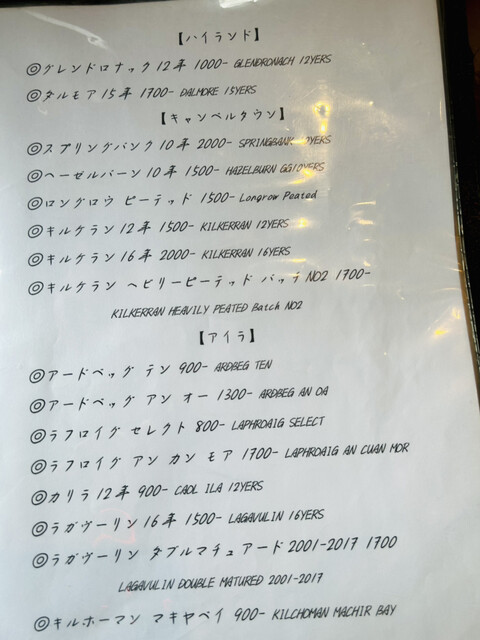 【ハイランド】
◎グレンドロナック 12年 1000- GLENDRONACH 12YERS
◎ダルモア 15年 1700- DALMORE 15YERS
【キャンベルタウン】
◎スプリングバンク 10年 2000- SPRINGBANK
◎ヘーゼルバーン 10年 1500- HAZELBURN
◎ロングロウ ピーテッド 1500- Longrow Peated
◎キルケラン 12年 1500- KILKERRAN 12YERS
◎キルケラン 16年 2000- KILKERRAN 16YERS
◎キルケラン ヘビリーピーテッド バッチNO2 1700-
KILKERRAN HEAVILY PEATED Batch NO2
【アイラ】
◎アードベッグ テン 900- ARDBEG TEN
◎アードベッグ アン オー 1300- ARDBEG AN OA
◎ラフロイグ セレクト 800- LAPHROAIG SELECT
◎ラフロイグ アン カン モア 1700- LAPHROAIG AN CUAN MOR
◎カリラ 12年 900- CAOL ILA 12YERS
◎ラガヴーリン 16年 1500- LAGAVULIN 16YERS
◎ラガヴーリン ダブルマチュアード 2001-2017 1700
LAGAVULIN DOUBLE MATURED 2001-2017
◎キルホーマン マキヤベイ 900- KILCHOMAN MACHIR BAY